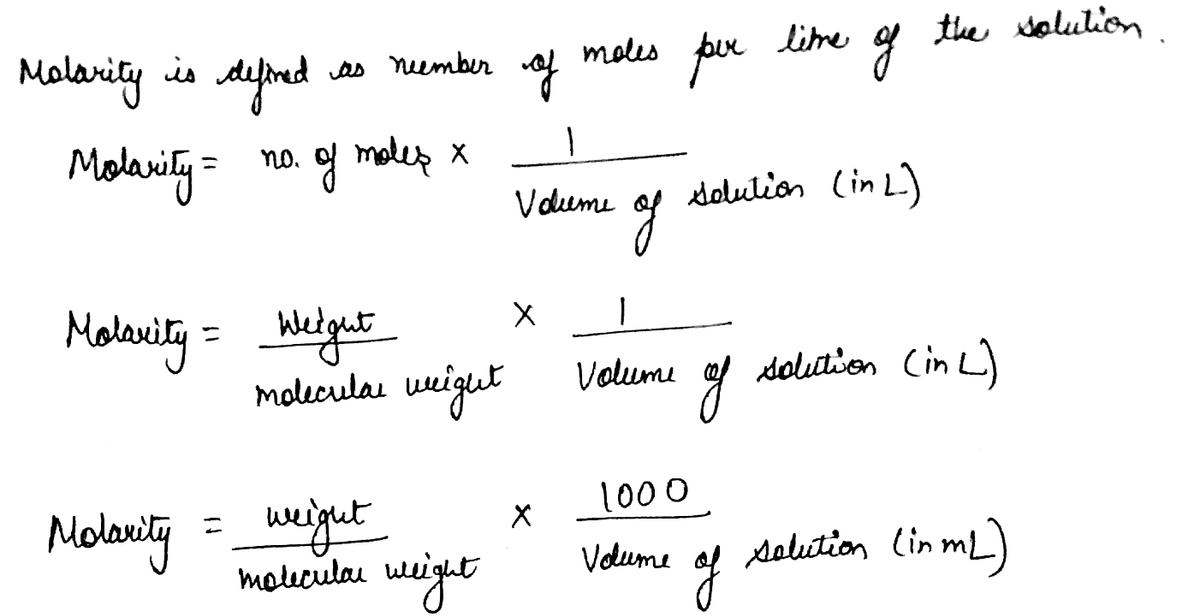 Molarity is defined as number of moles per litre of the solution.
Molarity = no. of moles × 1 / Volume of solution (in L)
Molarity = Weight / molecular weight × 1 / Volume of solution (in L)
Molarity = weight / molecular weight × 1000 / Volume of solution (in mL)